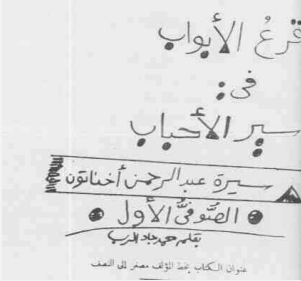 قرعُ الأبواب
فى :
سير الأحباب
سيرة عبد الرحمن أخناتون
الصُّوفىُّ الأول
بقلم
عنوان الكتاب بخط المؤلف مصغر إلى النصف